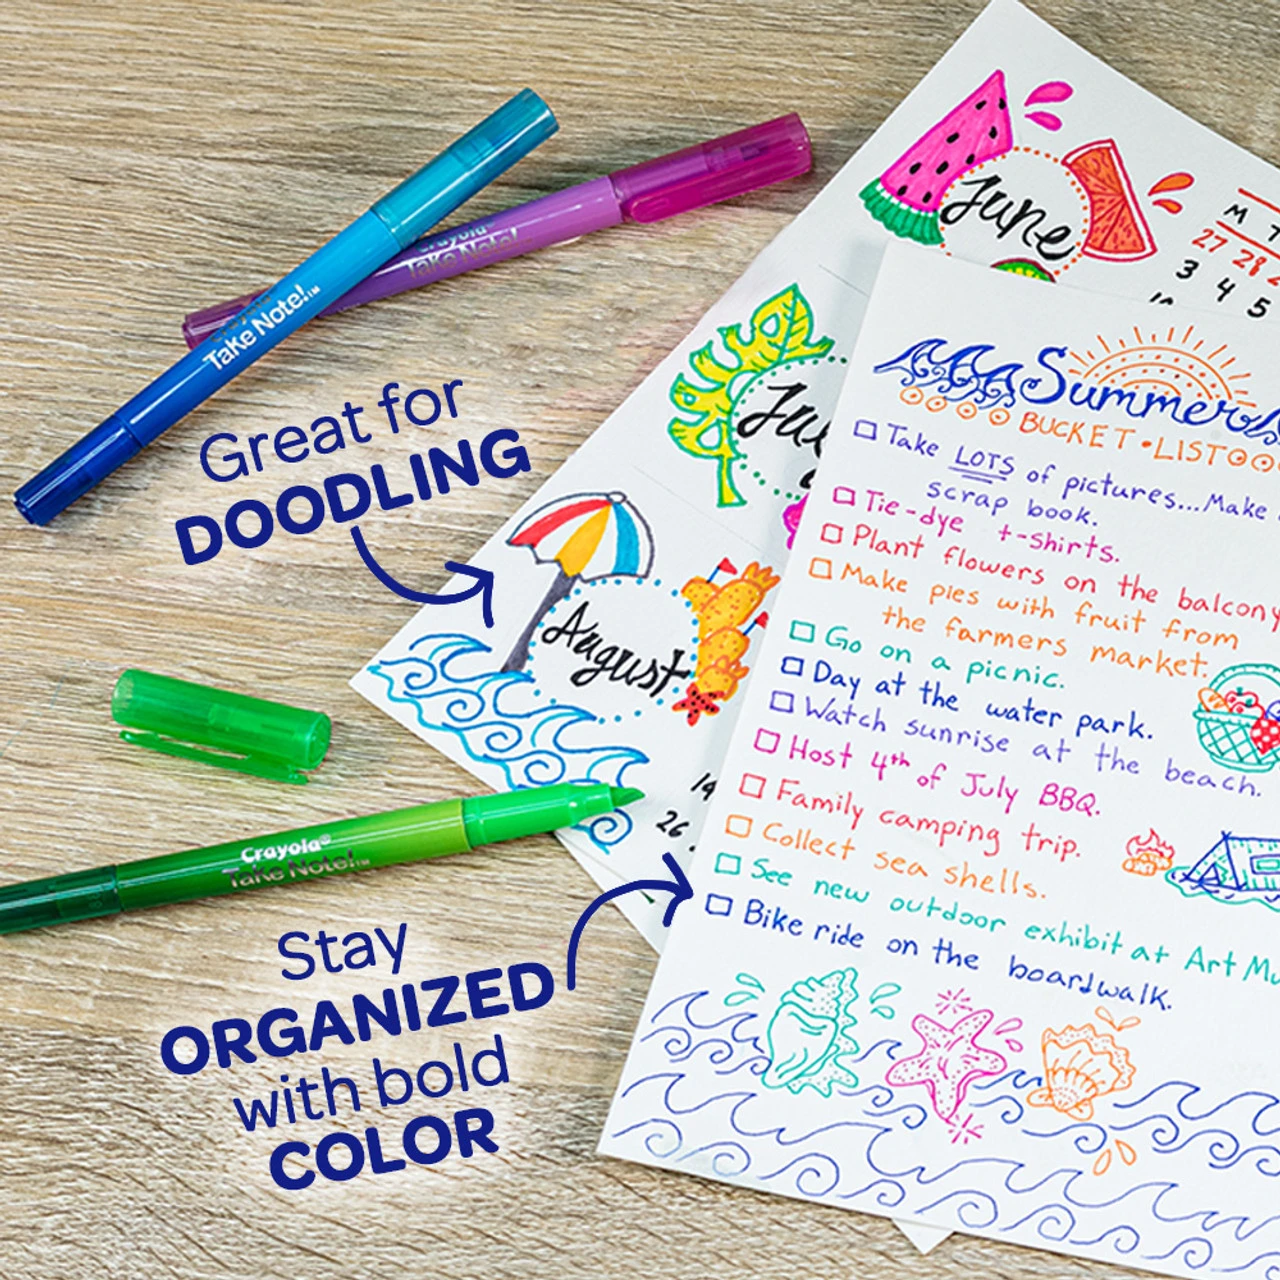 Crayola
Take Note!
Crayola
Take Note!™
Great for
DOODLING
June
M T
27 28 2
3 4 5
10
August
14
26
Summer
BUCKET • LIST
Take LOTS of pictures...Make
scrap book.
Tie-dye t-shirts.
Plant flowers on the balcony
Make pies with fruit from
the farmers market.
Go on a picnic.
Day at the water park.
Watch sunrise at the beach.
Host 4th of July BBQ.
Family camping trip.
Collect sea shells.
See new outdoor exhibit at Art Mu
Bike ride on the boardwalk.
Crayola®
Take Note!™
Stay
ORGANIZED
with bold
COLOR